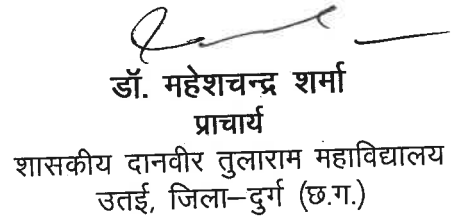 डॉ. महेशचन्द्र शर्मा
प्राचार्य
शासकीय दानवीर तुलाराम महाविद्यालय
उतई, जिला–दुर्ग (छ.ग.)